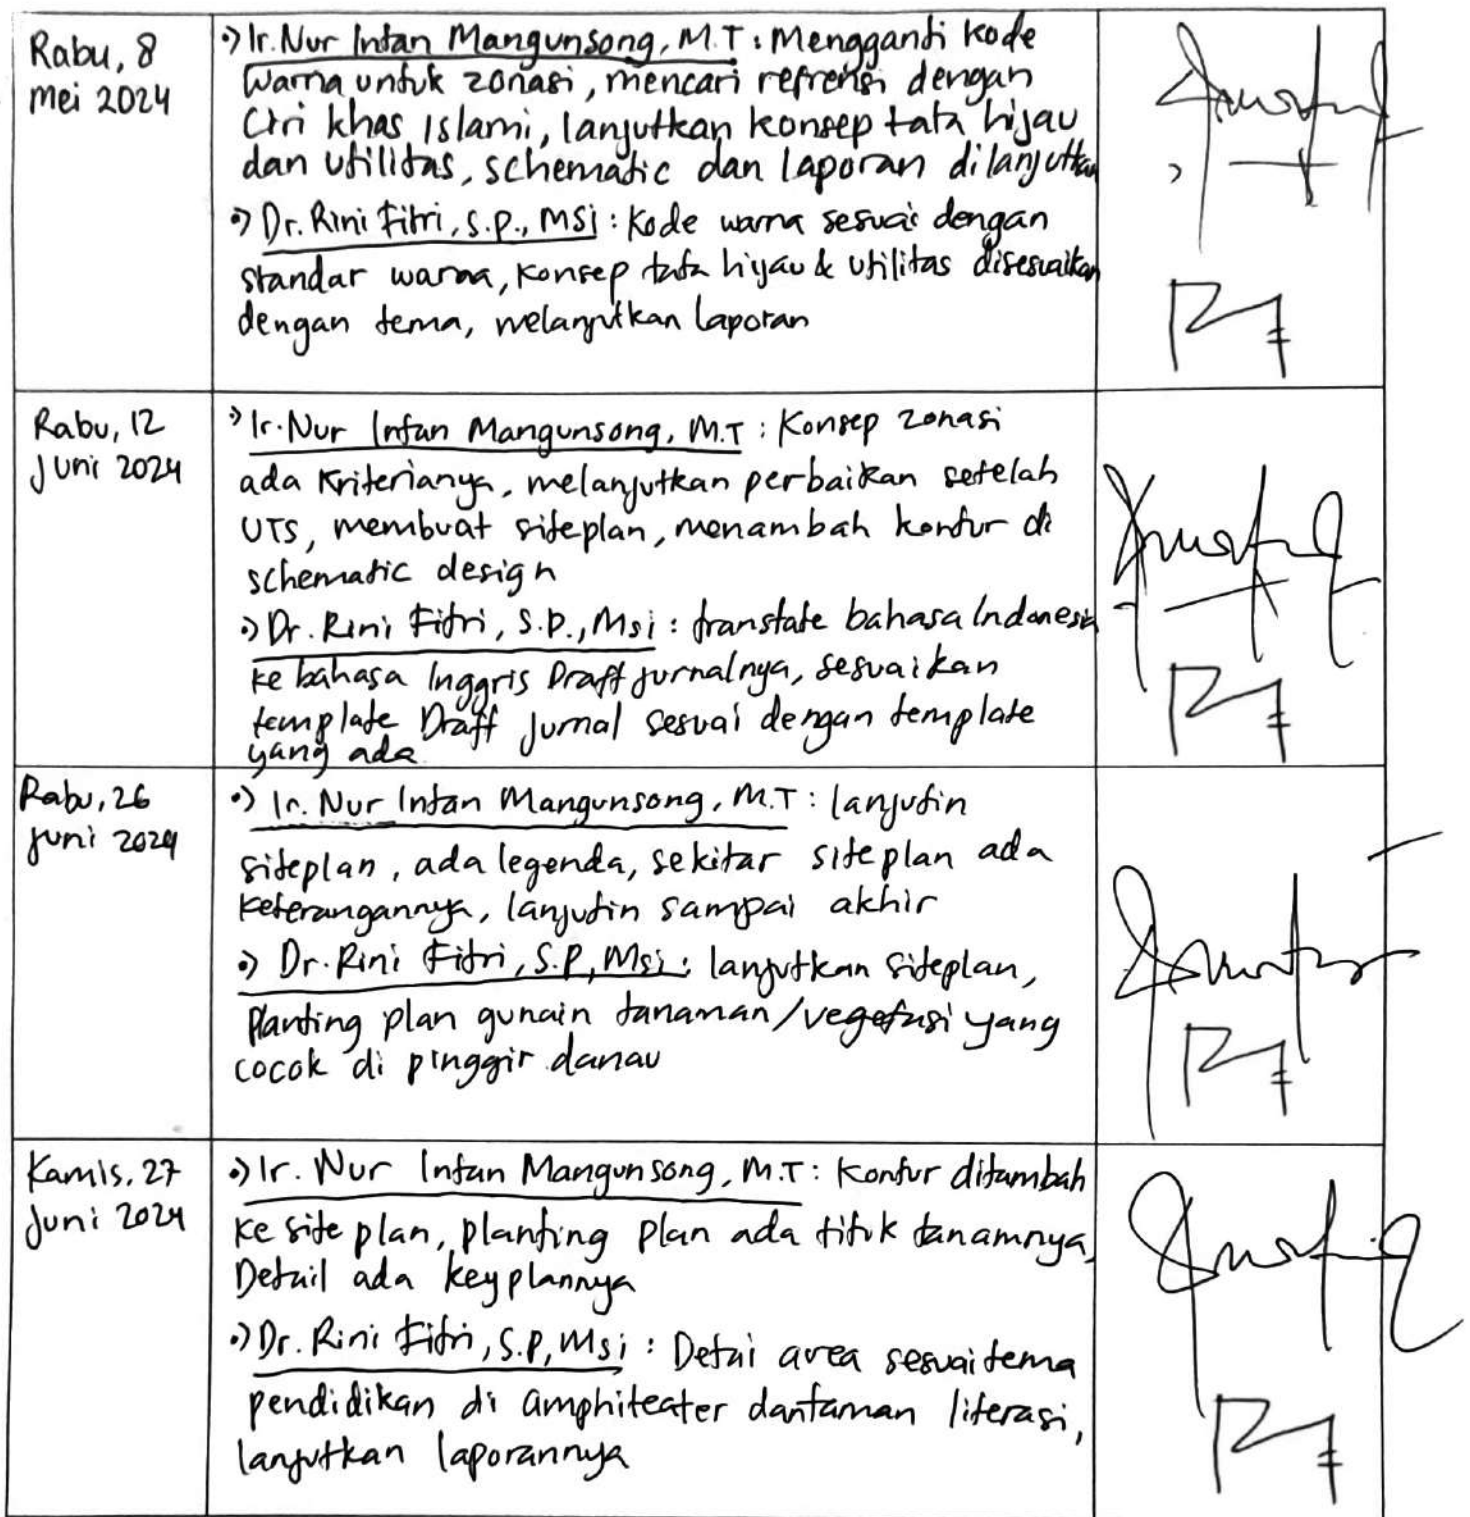 Rabu, 8
Mei 2024
•) Ir. Nur Intan Mangunsong, M.T : Mengganti kode
warna untuk zonasi, mencari refrensi dengan
Ciri khas Islami, lanjutkan konsep tata hijau
dan utilitas, schematic dan laporan dilanjutkan
•) Dr. Rini Fitri, S.P., MSi : Kode warna sesuai dengan
standar warna, konsep tata hijau & utilitas disesuaikan
dengan tema, melanjutkan laporan
Rabu, 12
Juni 2024
•) Ir. Nur Intan Mangunsong, M.T : Konsep zonasi
ada kriterianya, melanjutkan perbaikan setelah
UTS, membuat siteplan, menambah kontur di
schematic design
•) Dr. Rini Fitri, S.P., Msi : translate bahasa Indonesia
ke bahasa Inggris Draft jurnalnya, sesuaikan
template Draft Jurnal sesuai dengan template
yang ada
Rabu, 26
Juni 2024
•) Ir. Nur Intan Mangunsong, M.T : lanjutin
siteplan, ada legenda, sekitar siteplan ada
keterangannya, lanjutin sampai akhir
•) Dr. Rini Fitri, S.P, Msi : lanjutkan siteplan,
Planting plan gunain tanaman/vegetasi yang
cocok di pinggir danau
Kamis, 27
Juni 2024
•) Ir. Nur Intan Mangunsong, M.T : Kontur ditambah
ke site plan, planting plan ada titik tanamnya,
Detail ada keyplannya
•) Dr. Rini Fitri, S.P, Msi : Detai area sesuai tema
pendidikan di amphiteater dan taman literasi,
lanjutkan laporannya